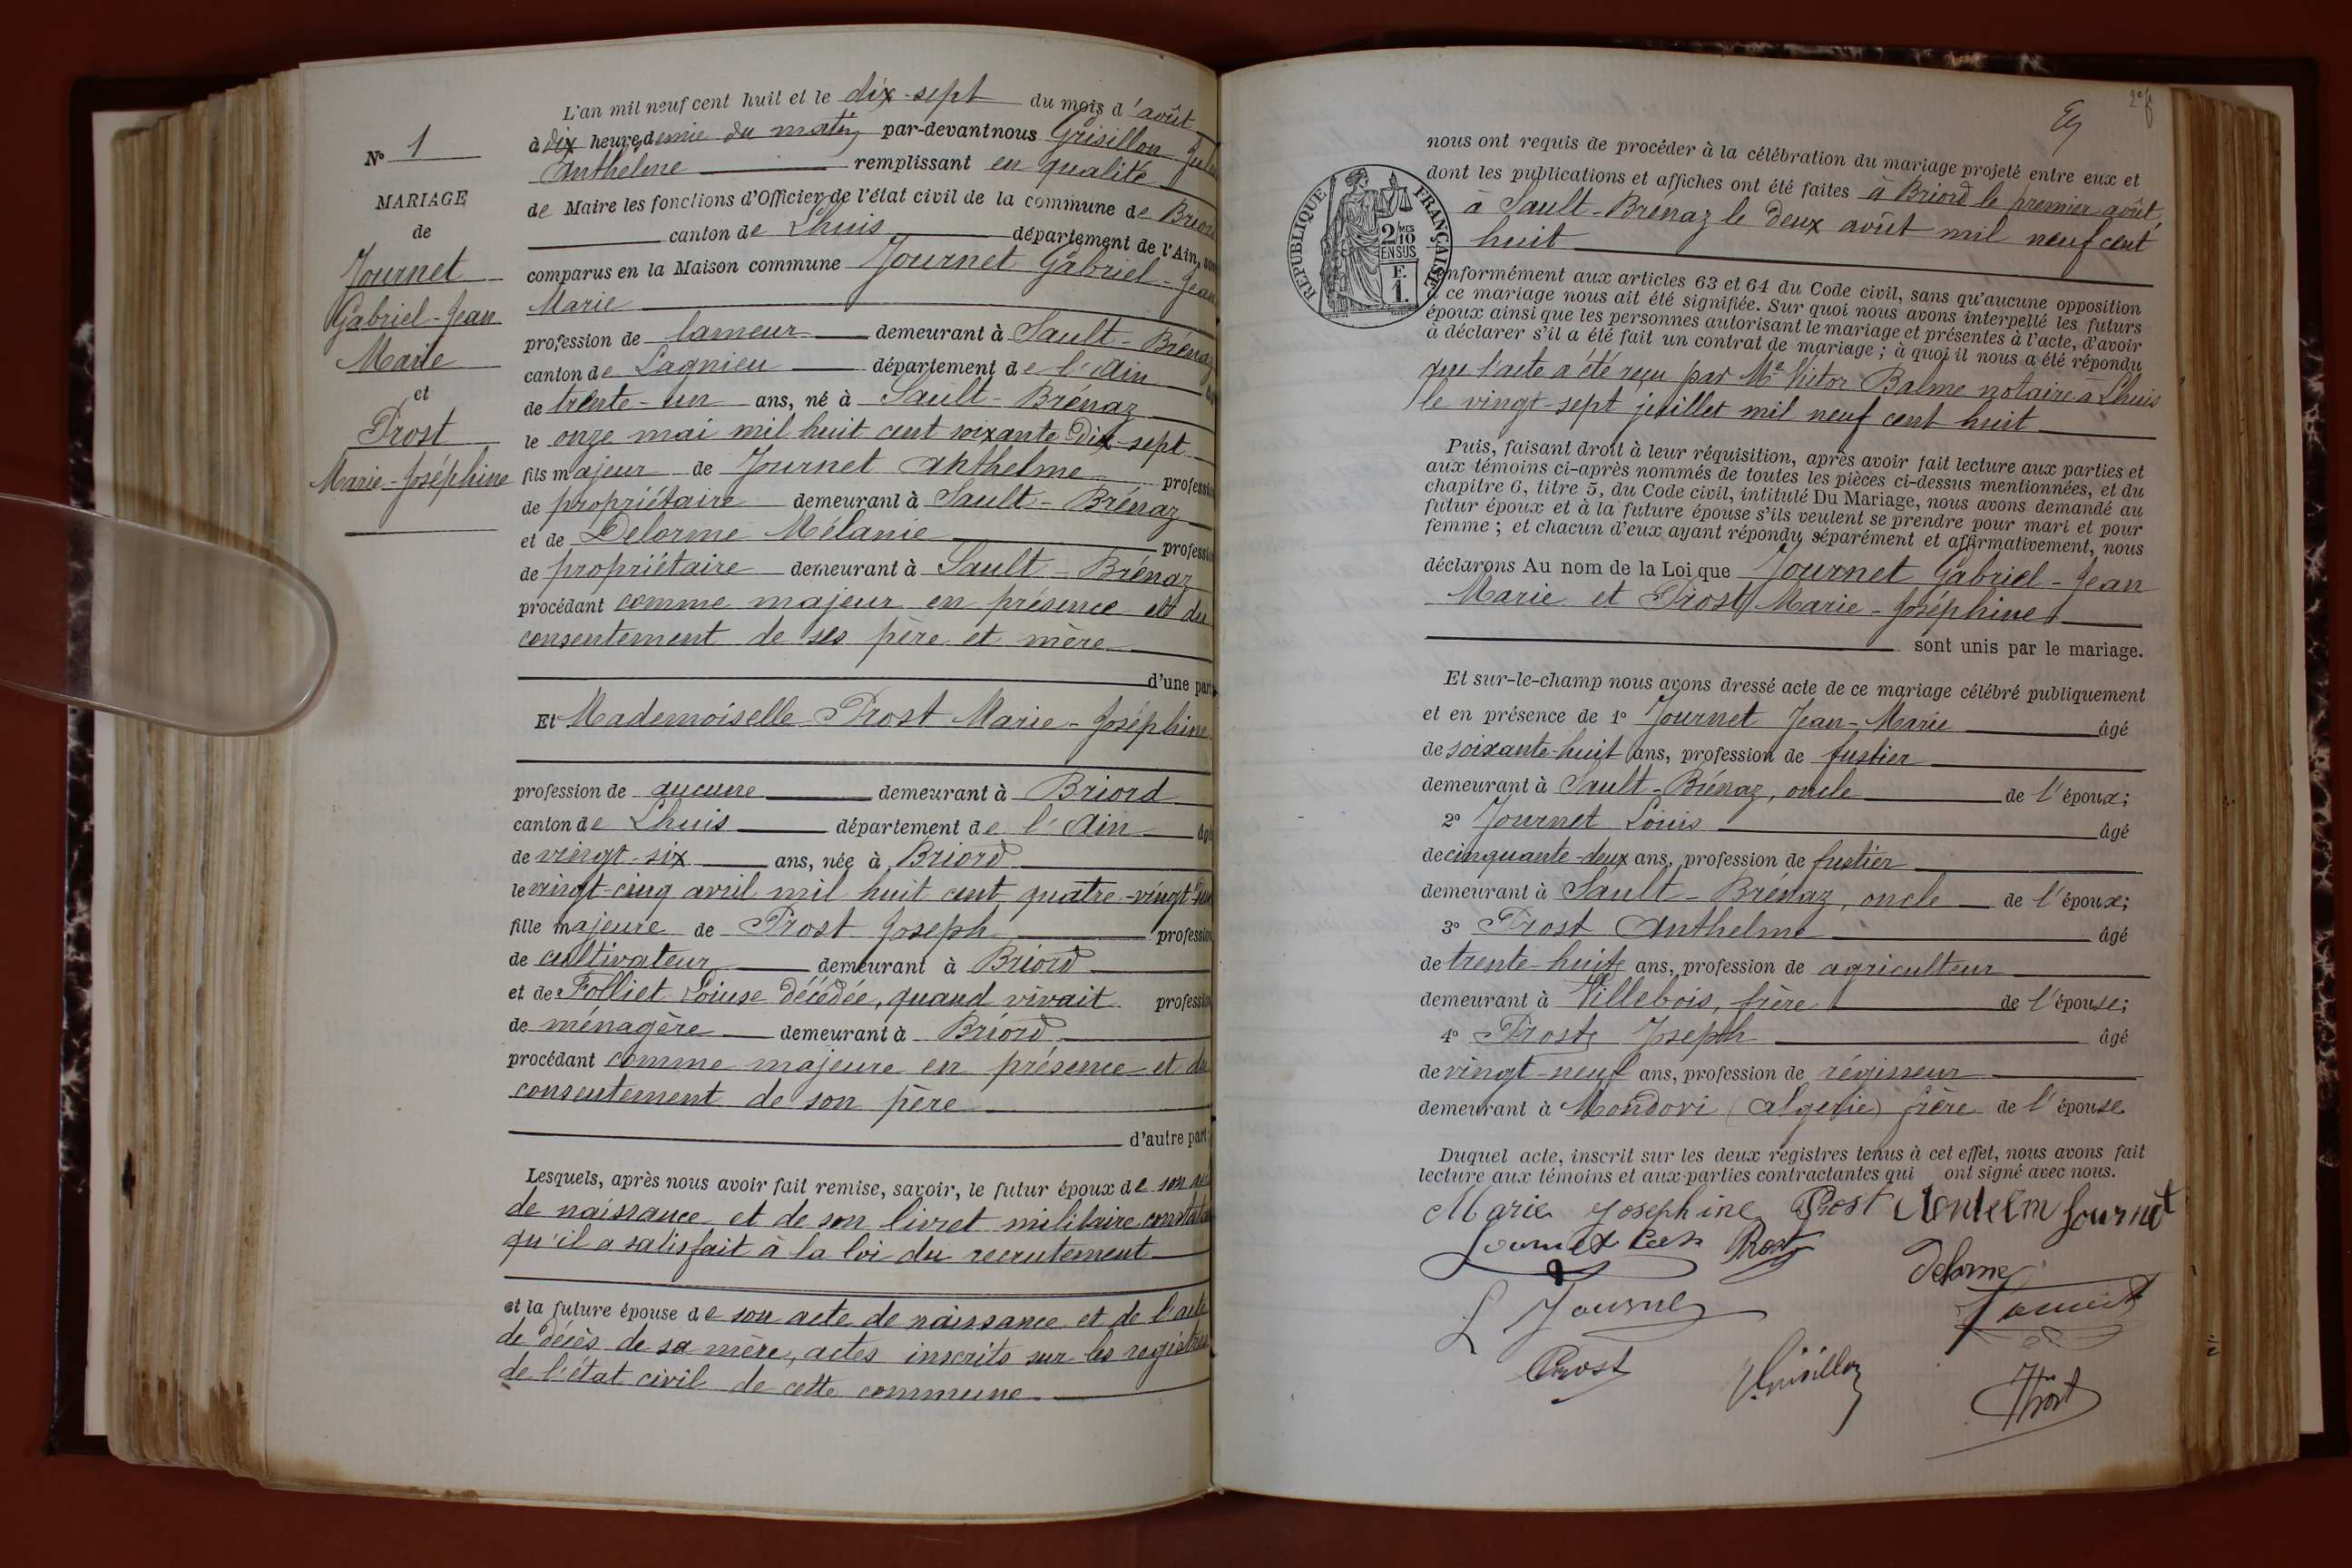 N° 1
MARIAGE
de
Journet
Gabriel-Jean
Marie
et
Prost
Marie-Joséphine
L'an mil neuf cent huit et le dix-sept du mois d'août
à dix heures demie du matin, par-devant nous Grisillon
Anthelme remplissant en qualité
de Maire les fonctions d'Officier de l'état civil de la commune de Briord
canton de Lhuis département de l'Ain,
comparus en la Maison commune Journet Gabriel-Jean
Marie
profession de lameur demeurant à Sault-Brénaz
canton de Lagnieu département de l'Ain
de trente-un ans, né à Sault-Brénaz
le onze mai mil huit cent soixante dix-sept
fils majeur de Journet Anthelme profession
de propriétaire demeurant à Sault-Brénaz
et de Delorme Mélanie profession
de propriétaire demeurant à Sault-Brénaz
procédant comme majeur en présence et du
consentement de ses père et mère
d'une part
Et Mademoiselle Prost Marie-Joséphine
profession de aucune demeurant à Briord
canton de Lhuis département de l'Ain âgée
de vingt-six ans, née à Briord
le vingt-cinq avril mil huit cent quatre-vingt-deux
fille majeure de Prost Joseph profession
de cultivateur demeurant à Briord
et de Folliet Loiuse décédée, quand vivait profession
de ménagère demeurant à Briord
procédant comme majeure en présence et du
consentement de son père
d'autre part;
Lesquels, après nous avoir fait remise, savoir, le futur époux de son
de naissance et de son livret militaire
qu'il a satisfait à la loi du recrutement
et la future épouse de son acte de naissance et de l'acte
de décès de sa mère, actes inscrits sur les registres
de l'état civil de cette commune
nous ont requis de procéder à la célébration du mariage projeté entre eux et
dont les publications et affiches ont été faites à Briord le premier août,
à Sault-Brénaz le deux août mil neuf cent
huit
RÉPUBLIQUE FRANÇAISE
2 MES
10
EN SUS
F.
1.
nformément aux articles 63 et 64 du Code civil, sans qu'aucune opposition
à ce mariage nous ait été signifiée. Sur quoi nous avons interpellé les futurs
époux ainsi que les personnes autorisant le mariage et présentes à l'acte, d'avoir
à déclarer s'il a été fait un contrat de mariage ; à quoi il nous a été répondu
que l'acte a été reçu par Me Victor Balme notaire à Lhuis
le vingt-sept juillet mil neuf cent huit
Puis, faisant droit à leur réquisition, après avoir fait lecture aux parties et
aux témoins ci-après nommés de toutes les pièces ci-dessus mentionnées, et du
chapitre 6, titre 5, du Code civil, intitulé Du Mariage, nous avons demandé au
futur époux et à la future épouse s'ils veulent se prendre pour mari et pour
femme ; et chacun d'eux ayant répondu séparément et affirmativement, nous
déclarons Au nom de la Loi que Journet Gabriel-Jean
Marie et Prost Marie-Joséphine
sont unis par le mariage.
Et sur-le-champ nous avons dressé acte de ce mariage célébré publiquement
et en présence de 1° Journet Jean-Marie âgé
de soixante-huit ans, profession de fustier
demeurant à Sault-Brénaz, oncle de l'époux;
2° Journet Louis âgé
de cinquante-deux ans, profession de fustier
demeurant à Sault-Brénaz, oncle de l'époux;
3° Prost Anthelme âgé
de trente-huit ans, profession de agriculteur
demeurant à Villebois, frère de l'épouse;
4° Prost Joseph âgé
de vingt-neuf ans, profession de régisseur
demeurant à Mondovi (Algerie) frère de l'épouse.
Duquel acte, inscrit sur les deux registres tenus à cet effet, nous avons fait
lecture aux témoins et aux parties contractantes qui ont signé avec nous.
Marie Josephine Prost Journet
Journet Prost
Delorme
L Journet
Prost